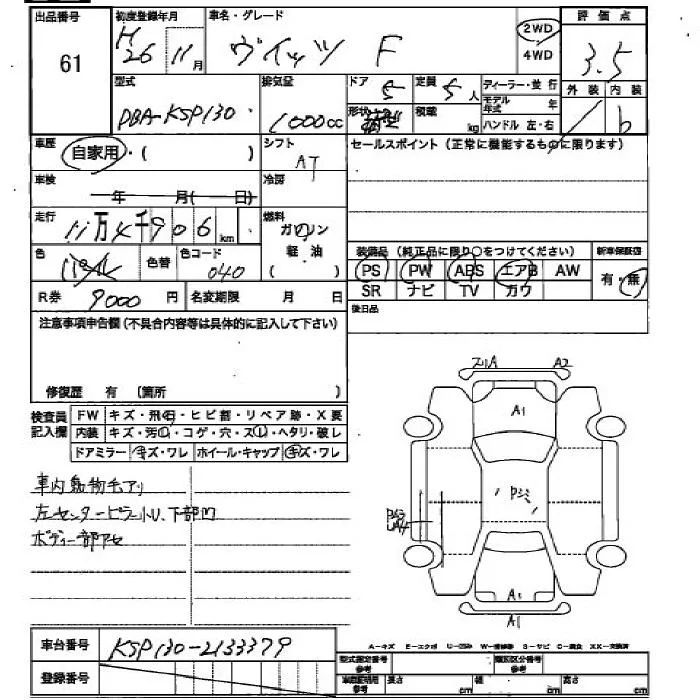 出品番号 初度登録年月 車名・グレード 評価点
61 H26 11月 ヴィッツ F 2WD 4WD 3.5
型式 排気量 ドア 5 定員 5人 ディーラー・並行 外装 内装
DBA-KSP130 1000cc 形状 積載 kg モデル年式 年 ハンドル 左・右 b
車歴 自家用・( ) シフト AT セールスポイント (正常に機能するものに限ります)
車検 年 月( 日) 冷房
走行 11万4千906km 燃料 ガソリン 軽油
装備品 (純正品に限り○をつけてください) 新車保証書
色 パール 色替 色コード 040
PS PW ABS エアB AW 有・無
SR ナビ TV カワ
R券 9000円 名変期限 月 日
後日品
注意事項申告欄 (不具合内容等は具体的に記入して下さい)
修復歴 有 (箇所 )
検査員記入欄 FW キズ・飛石・ヒビ割・リペア跡・X要
内装 キズ・汚レ・コゲ・穴・スレ・ヘタリ・破レ
ドアミラー キズ・ワレ ホイール・キャップ キズ・ワレ
A2
A1
車内動物毛アリ
左センターピラー小U、下部凹
ボディー部アセ
A1
車台番号 KSP130-2133379
登録番号
A-キズ E-エクボ U-凹み W-補修跡 S-サビ C-腐食 XX-交換済
型式指定番号 参考 類別区分番号 参考
車庫証明用 参考 長さ cm 幅 cm 高さ cm